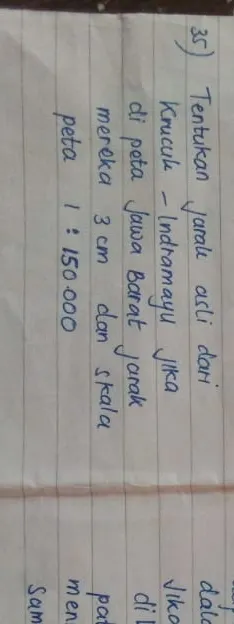 35) Tentukan jarak asli dari
Krucuk - Indramayu jika
di peta Jawa Barat jarak
mereka 3 cm dan skala
peta 1 : 150.000
dala
Jika
di
men
sam